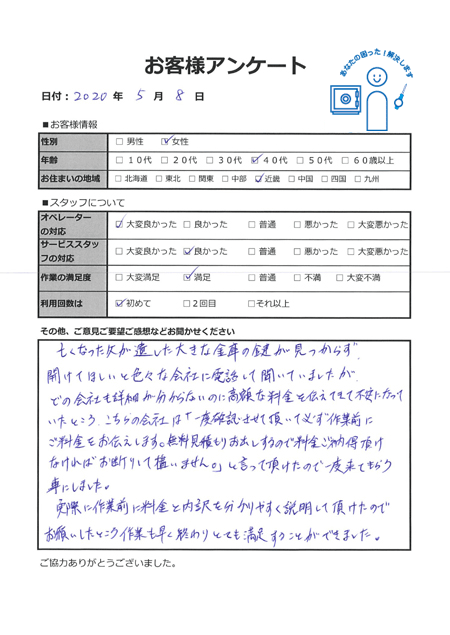 お客様アンケート
あなたの困った!解決します
日付：2020 年 5 月 8 日
■お客様情報
性別 □男性 ☑女性
年齢 □10代 □20代 □30代 ☑40代 □50代 □60歳以上
お住まいの地域 □北海道 □東北 □関東 □中部 ☑近畿 □中国 □四国 □九州
■スタッフについて
オペレーターの対応 ☑大変良かった □良かった □普通 □悪かった □大変悪かった
サービススタッフの対応 □大変良かった ☑良かった □普通 □悪かった □大変悪かった
作業の満足度 □大変満足 ☑満足 □普通 □不満 □大変不満
利用回数は ☑初めて □2回目 □それ以上
その他、ご意見ご要望ご感想などお聞かせください
亡くなった父が遺した大きな金庫の鍵が見つからず、
開けてほしいと色々な会社に電話して聞いていましたが、
どの会社も詳細が分からないのに高額な料金を伝えてきて不安になって
いたところ、こちらの会社は「一度確認させて頂いて必ず作業前に
ご料金をお伝えします。無料見積もりお出しするので料金ご納得頂け
なければお断りして構いません。」と言って頂けたので一度来てもらう
事にしました。
実際に作業前に料金と内訳を分かりやすく説明して頂けたので
お願いしたところ作業も早く終わりとても満足することができました。
ご協力ありがとうございました。